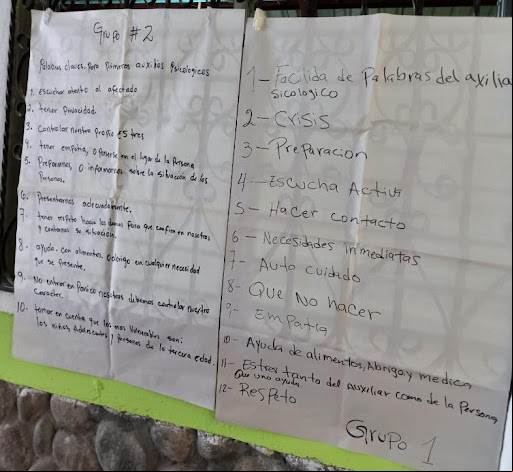 Grupo #2
Palabras claves para Primeros auxilios Psicologicos
1. Escuchar atento al afectado
2. tener privacidad.
3. Controlar nuestro propio Estres
4. tener empatia, o ponerse en el lugar de la Persona
5. Prepararnos, o informarnos sobre la situación de las
Personas.
6. Presentarnos adecuadamente.
7. tener respeto hacia los demas para que confien en nosotros
y contarnos su situación.
8. ayuda. con alimentos, o abrigo en cualquier necesidad
que se presente.
9. No entrar en Panico nosotros debemos controlar nuestro
Caracter.
10. tomar en cuenta que los mas Vulnerables son:
los niños, Adolecentes y personas de la tercera edad.
1- Facilida de Palabras del axilia
sicologico
2- Crisis
3- Preparacion
4- Escucha Activa
5- Hacer contacto
6- Necesidades inmediatas
7- Auto cuidado
8- Que No hacer
9- Empatia
10- Ayuda de alimentos, Abrigo y medica
11- Estres tanto del auxiliar como de la Persona
Que uno ayuda
12- Respeto
Grupo 1